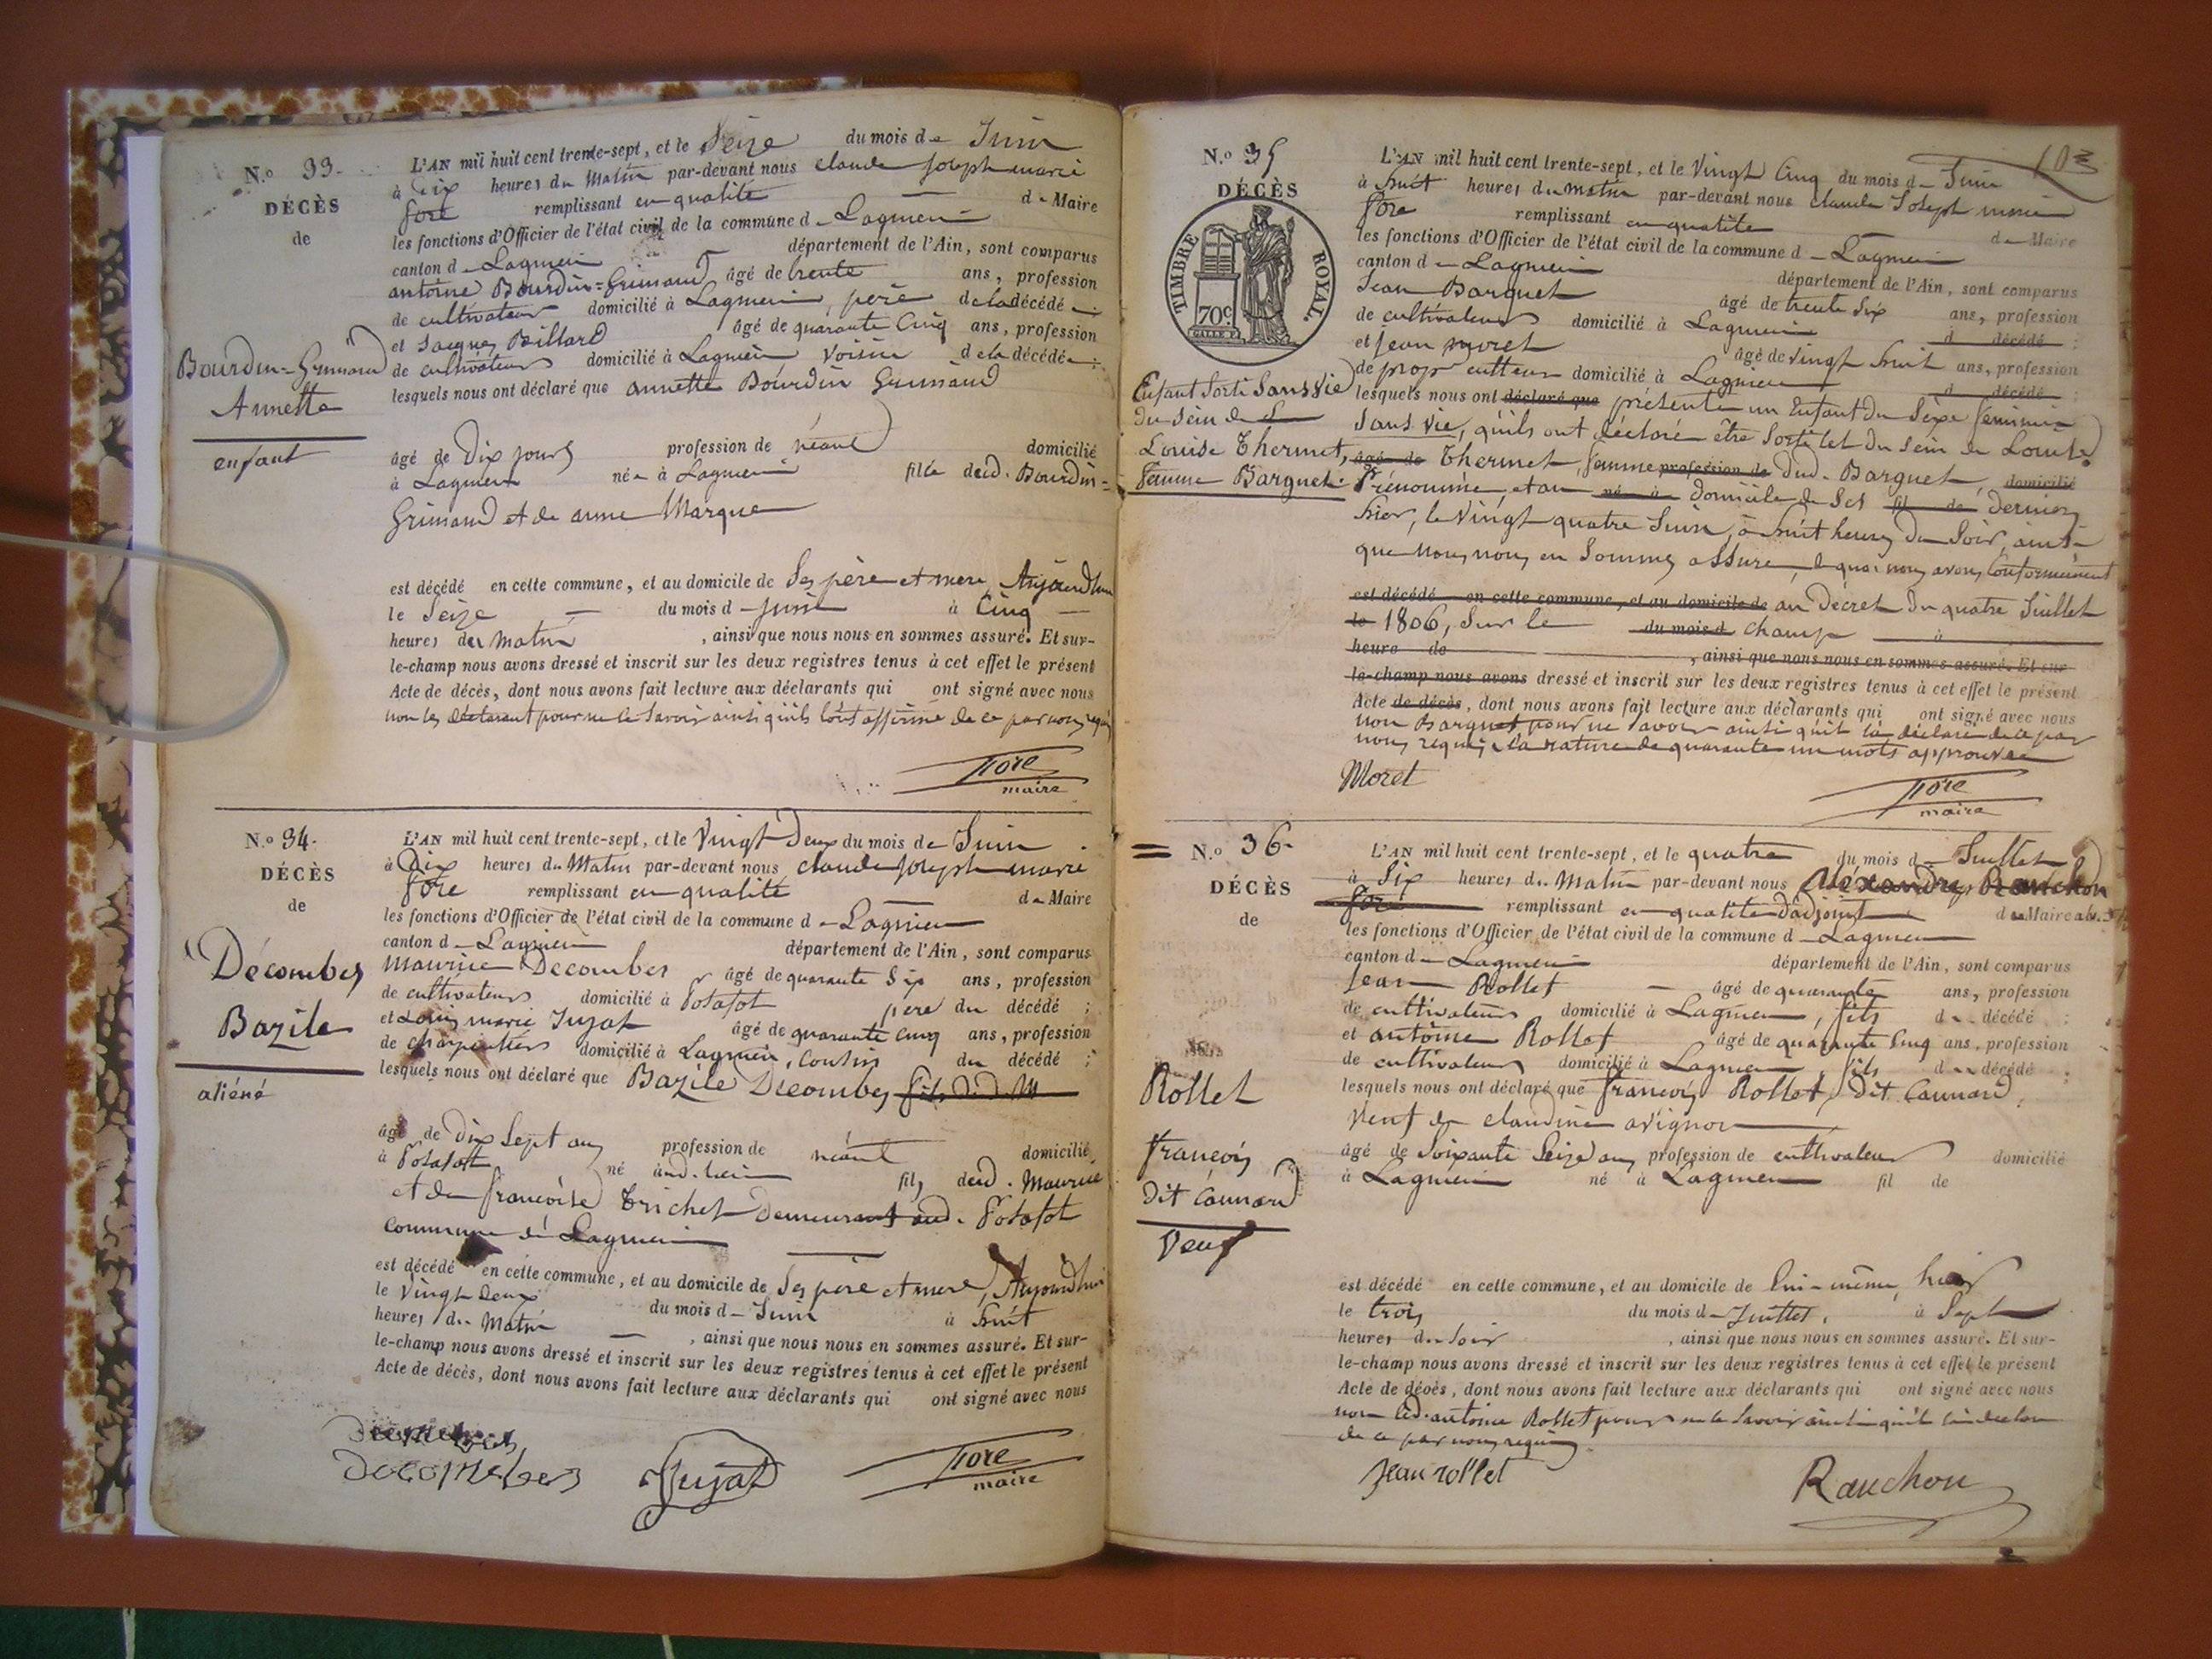 N.o 33.
DÉCÈS
de
Bourdin=Grimaud
Annette
enfant
L'AN mil huit cent trente-sept, et le Seize du mois de Juin
à Dix heures du Matin par-devant nous claude Joseph marie
fore remplissant en qualité de Maire
les fonctions d'Officier de l'état civil de la commune d - Lagnieu
canton d - Lagnieu département de l'Ain, sont comparus
antoine Bourdin=Grimaud âgé de trente ans, profession
de cultivateur domicilié à Lagnieu, père de la décédée
et Jacques Billard âgé de quarante Cinq ans, profession
de cultivateur domicilié à Lagnieu voisin de la décédée ;
lesquels nous ont déclaré que annette Bourdin Grimaud
âgé de Dix jours profession de néant domicilié
à Lagnieu née à Lagnieu fille dud. Bourdin=
Grimaud et de anne Marque
est décédé en cette commune, et au domicile de Ses père et mere, Aujourdhui
le Seize du mois d - Juin à Cinq
heures du Matin , ainsi que nous nous en sommes assuré. Et sur-
le-champ nous avons dressé et inscrit sur les deux registres tenus à cet effet le présent
Acte de décès, dont nous avons fait lecture aux déclarants qui ont signé avec nous
non les déclarant pour ne le Savoir ainsi qu'ils l'ont affirmé de ce par nous requis
fore
maire
N.o 34.
DÉCÈS
de
Décombes
Bazile
aliéné
L'AN mil huit cent trente-sept, et le Vingt Deux du mois de Juin
à Dix heures du Matin par-devant nous claude Joseph marie
fore remplissant en qualité de Maire
les fonctions d'Officier de l'état civil de la commune d - Lagnieu
canton d - Lagnieu département de l'Ain, sont comparus
Maurice Decombes âgé de quarante Six ans, profession
de cultivateur domicilié à Posafot père du décédé ;
et Louis marie Jujat âgé de quarante cinq ans, profession
de charpentier domicilié à Lagnieu, Cousin du décédé ;
lesquels nous ont déclaré que Bazile Decombes fils d. d. M
âgé de Dix Sept ans profession de néant domicilié
à Posafot né aud. lieu fils dud. Maurice
et de françoise Trichet Demeurant aud. Posafot
commune de Lagnieu
est décédé en cette commune, et au domicile de Ses père et mere, Aujourdhui
le Vingt Deux du mois d - Juin à huit
heures du Matin , ainsi que nous nous en sommes assuré. Et sur-
le-champ nous avons dressé et inscrit sur les deux registres tenus à cet effet le présent
Acte de décès, dont nous avons fait lecture aux déclarants qui ont signé avec nous
Decombes
Jujat
fore
maire
103
N.o 35
DÉCÈS
TIMBRE ROYAL.
70c.
Enfant Sorti Sans Vie
du Sein de
Louise Thermet,
femme Barquet.
L'AN mil huit cent trente-sept, et le Vingt Cinq du mois d - Juin
à huit heures du matin par-devant nous claude Joseph marie
fore remplissant en qualité de Maire
les fonctions d'Officier de l'état civil de la commune d - Lagnieu
canton d - Lagnieu département de l'Ain, sont comparus
Jean Barquet âgé de trente Six ans, profession
de cultivateur domicilié à Lagnieu d décédé ;
et jean moret âgé de vingt huit ans, profession
de prop. cultteur domicilié à Lagnieu d décédé ;
lesquels nous ont déclaré que présenté un Enfant du Sexe feminin
Sans Vie, qu'ils ont déclaré être Sorti tel du Sein de Louise
âgé de Thermet, femme profession de dud. Barquet, domicilié
Prénommé, et au né à domicile de Ses fil de derniers
hier, le Vingt quatre Juin, à huit heures du Soir, ainsi
que nous nous en Sommes assuré, de quoi nous avons Conformement
est décédé en cette commune, et au domicile de au Décret du quatre Juillet
le 1806, Sur le du mois d champ à
heure de , ainsi que nous nous en sommes assuré. Et sur
le-champ nous avons dressé et inscrit sur les deux registres tenus à cet effet le présent
Acte de décès, dont nous avons fait lecture aux déclarants qui ont signé avec nous
non Barquet pour ne Savoir ainsi qu'il l'a déclaré de ce par
nous requis, la rature de quarante un mots approuvée
Moret
fore
maire
N.o 36.
DÉCÈS
de
Rollet
françois
dit Cannard
Veuf
L'AN mil huit cent trente-sept, et le quatre du mois d - Juillet
à Six heures du Matin par-devant nous Alexandre Rauchon
fore remplissant en qualité d'adjoint du Maire
les fonctions d'Officier de l'état civil de la commune d - Lagnieu
canton d - Lagnieu département de l'Ain, sont comparus
Jean Rollet âgé de quarante ans, profession
de cultivateur domicilié à Lagnieu, fils du décédé ;
et antoine Rollet âgé de quarante Cinq ans, profession
de cultivateur domicilié à Lagnieu, fils du décédé ;
lesquels nous ont déclaré que françois Rollet, dit Cannard,
Veuf de claudine avignon
âgé de Soixante Seize ans profession de cultivateur domicilié
à Lagnieu né à Lagnieu fil de
est décédé en cette commune, et au domicile de lui-même, hier
le trois du mois d - Juillet, à Sept
heures du Soir , ainsi que nous nous en sommes assuré. Et sur-
le-champ nous avons dressé et inscrit sur les deux registres tenus à cet effet le présent
Acte de décès, dont nous avons fait lecture aux déclarants qui ont signé avec nous
non led. antoine Rollet pour ne le Savoir ainsi qu'il l'a déclaré
de ce par nous requis.
Jean rollet
Rauchon